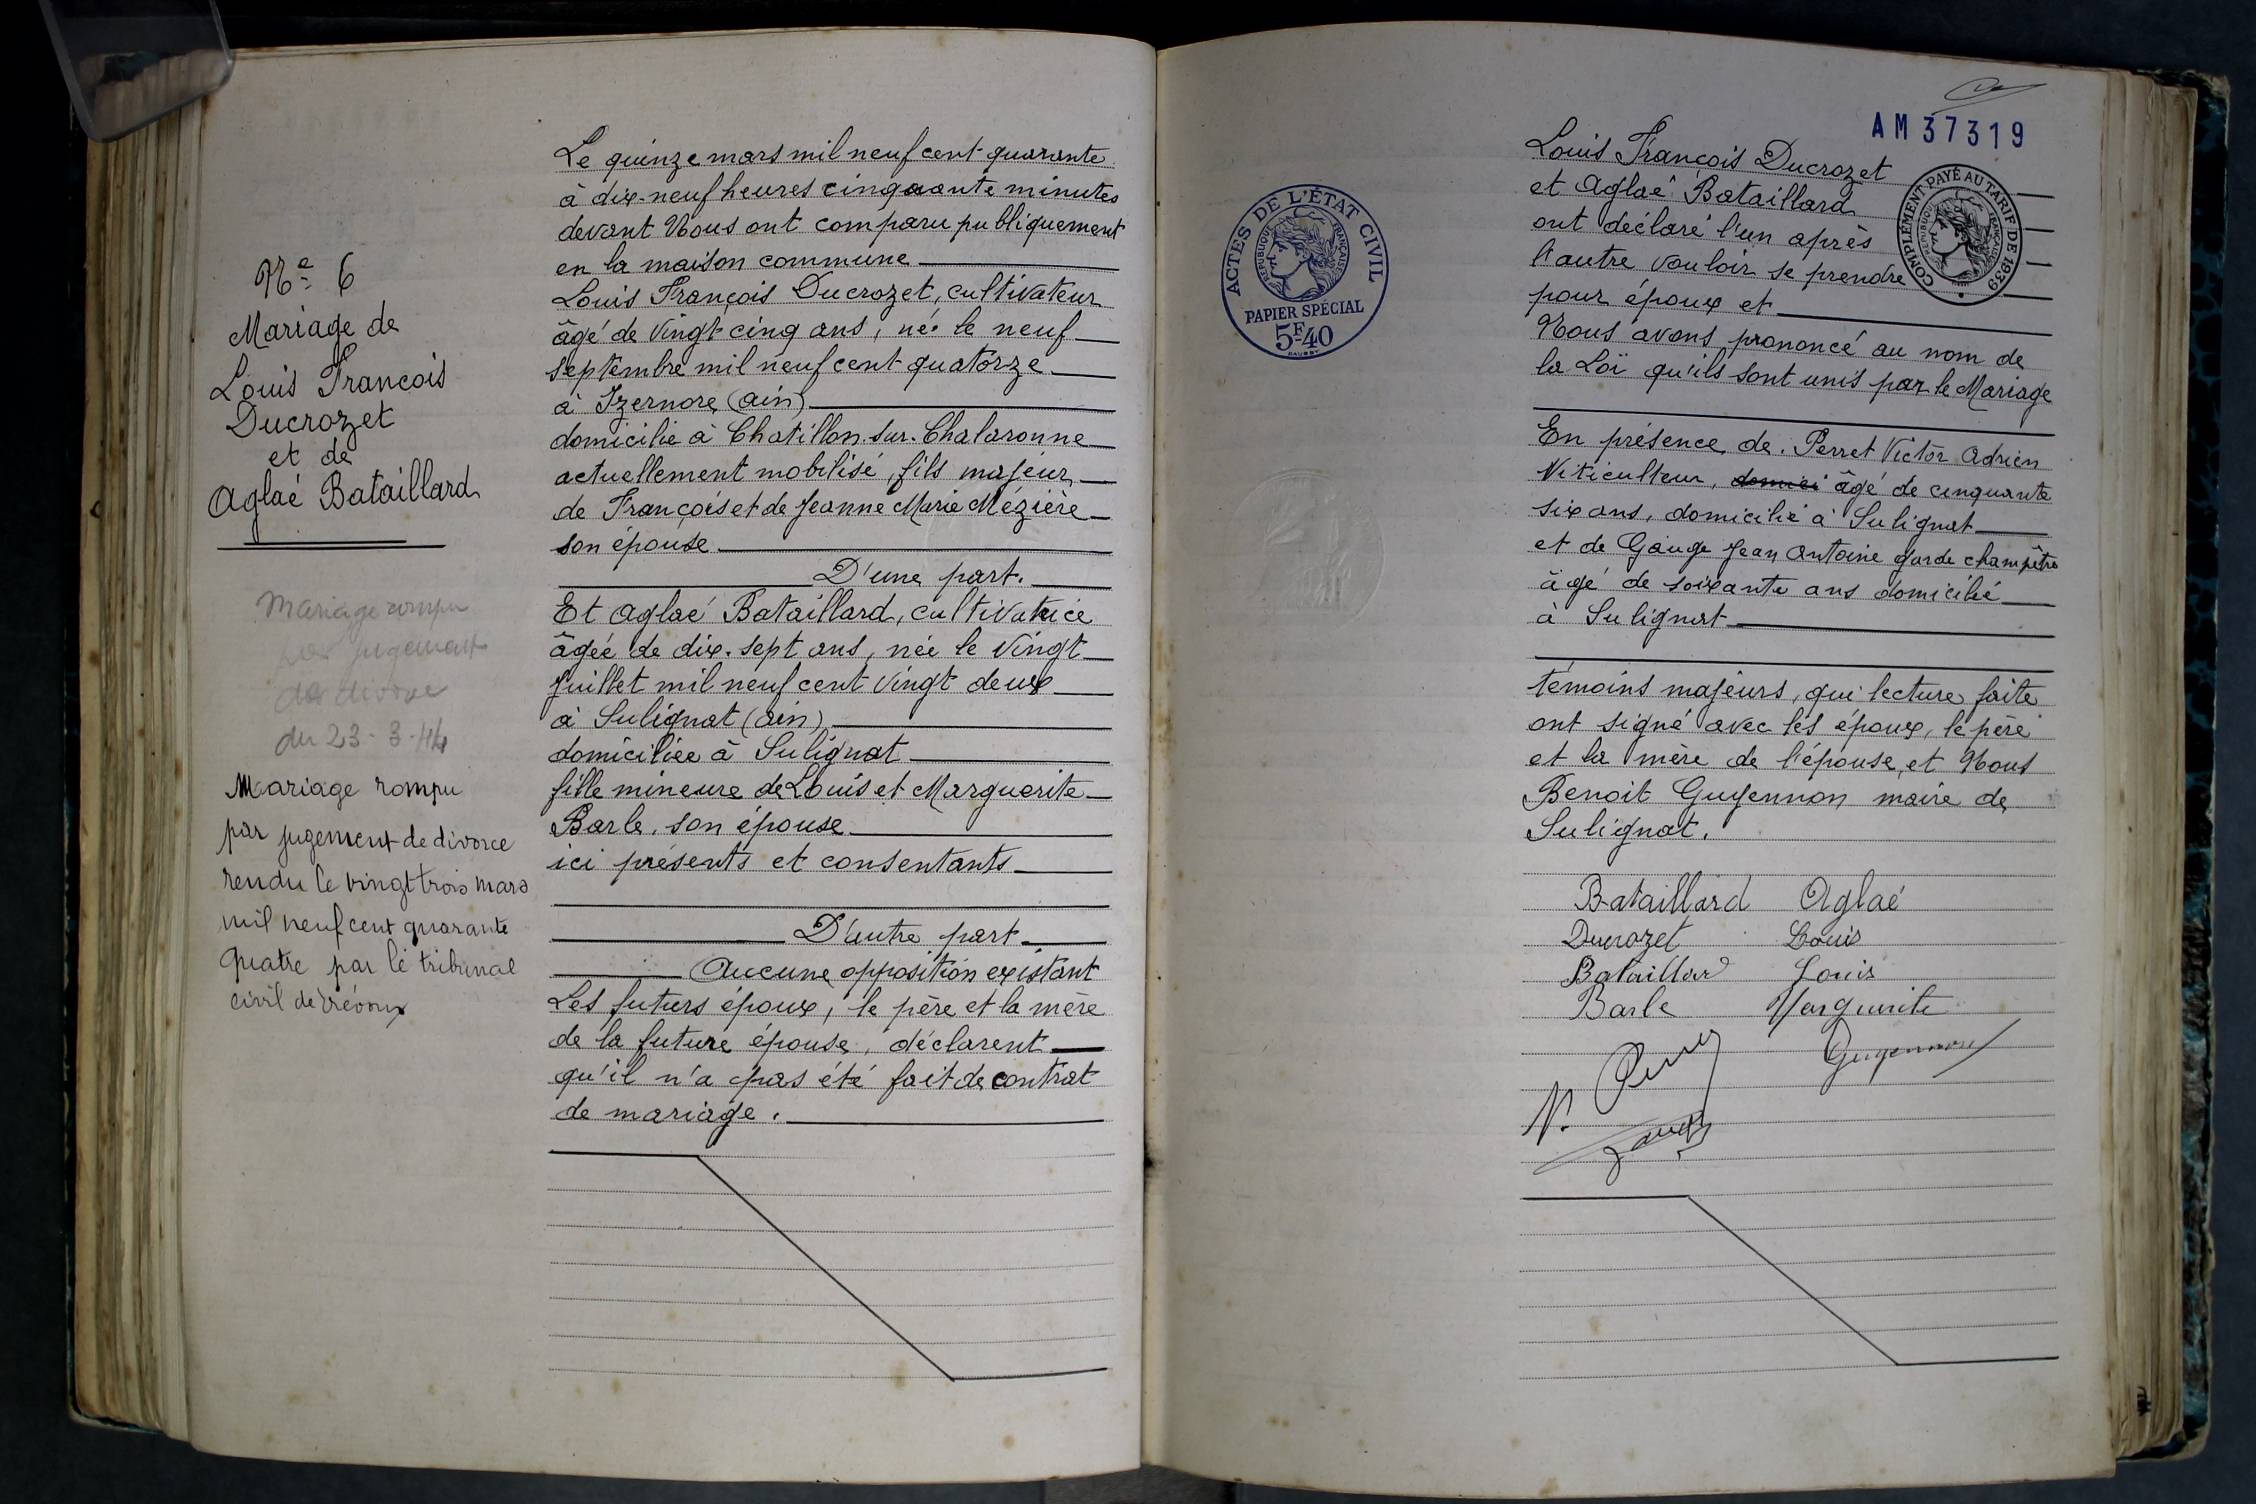 Nº 6
Mariage de
Louis François
Ducrozet
et de
Aglaé Bataillard
Mariage rompu
par jugement
de divorce
du 23-3-44
Mariage rompu
par jugement de divorce
rendu le vingt trois mars
mil neuf cent quarante
quatre par le tribunal
civil de Trévoux
Le quinze mars mil neuf cent quarante
à dix-neuf heures cinquante minutes
devant Nous ont comparu publiquement
en la maison commune
Louis François Ducrozet, cultivateur
âgé de vingt-cinq ans, né le neuf
septembre mil neuf cent quatorze
à Izernore (ain)
domicilié à Chatillon-sur-Chalaronne
actuellement mobilisé, fils majeur
de François et de Jeanne Marie Mézière
son épouse
D'une part.
Et Aglaé Bataillard, cultivatrice
âgée de dix-sept ans, née le vingt
Juillet mil neuf cent vingt deux
à Sulignat (ain)
domiciliée à Sulignat
fille mineure de Louis et Marguerite
Barle, son épouse
ici présents et consentants
D'autre part
Aucune opposition existant
Les futurs époux, le père et la mère
de la future épouse, déclarent
qu'il n'a pas été fait de contrat
de mariage.
AM 37319
ACTES DE L'ÉTAT CIVIL
RÉPUBLIQUE FRANÇAISE
PAPIER SPÉCIAL
5F40
COMPLÉMENT PAYÉ AU TARIF DE 1939
RÉPUBLIQUE FRANÇAISE
Louis François Ducrozet
et Aglaé Bataillard
ont déclaré l'un après
l'autre vouloir se prendre
pour époux et
Nous avons prononcé au nom de
la Loi qu'ils sont unis par le Mariage
En présence de Perret Victor Adrien
Viticulteur, domici âgé de cinquante
six ans, domicilié à Sulignat
et de Gauge Jean Antoine garde champêtre
âgé de soixante ans domicilié
à Sulignat
témoins majeurs, qui lecture faite
ont signé avec les époux, le père
et la mère de l'épouse, et Nous
Benoit Guyennon maire de
Sulignat.
Bataillard Aglaé
Ducrozet Louis
Bataillard Louis
Barle Marguerite
Guyennon
V. Perret